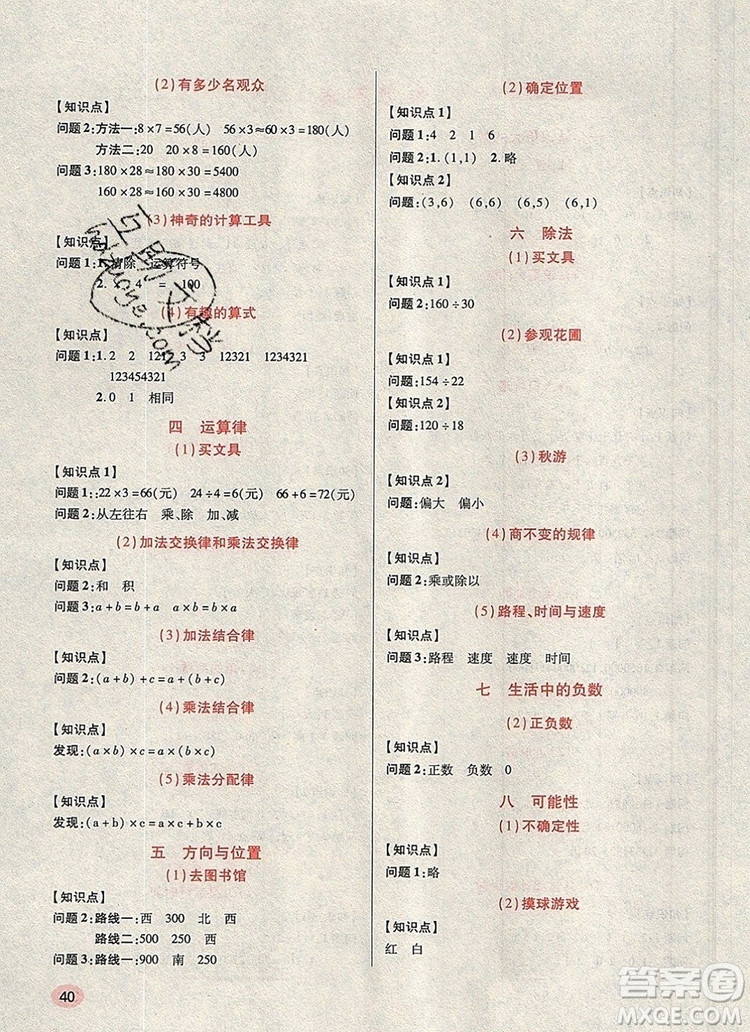 (2)有多少名观众
【知识点】
问题2:方法一:8×7=56(人) 56×3≈60×3=180(人)
方法二:20 20×8=160(人)
问题3:180×28≈180×30=5400
160×28≈160×30=4800
(3)神奇的计算工具
【知识点】
问题1:1.清除 运算符号
2. × 4 = 100
(4)有趣的算式
【知识点】
问题1:1.2 2 121 3 3 12321 1234321
123454321
2.0 1 相同
四 运算律
(1)买文具
【知识点1】
问题1:22×3=66(元) 24÷4=6(元) 66+6=72(元)
问题2:从左往右 乘、除 加、减
(2)加法交换律和乘法交换律
【知识点1】
问题2:和 积
问题3:a+b=b+a a×b=b×a
(3)加法结合律
【知识点】
问题2:(a+b)+c=a+(b+c)
(4)乘法结合律
【知识点】
发现:(a×b)×c=a×(b×c)
(5)乘法分配律
【知识点】
发现:(a+b)×c=a×c+b×c
五 方向与位置
(1)去图书馆
【知识点】
问题2:路线一:西 300 北 西
路线二:500 250 西
问题3:路线一:900 南 250
40
(2)确定位置
【知识点1】
问题1:4 2 1 6
问题2:1.(1,1) 2.略
【知识点2】
问题:(3,6) (6,6) (6,5) (6,1)
六 除法
(1)买文具
【知识点2】
问题:160÷30
(2)参观花圃
【知识点1】
问题:154÷22
【知识点2】
问题:120÷18
(3)秋游
【知识点1】
问题:偏大 偏小
(4)商不变的规律
【知识点1】
问题2:乘或除以
(5)路程、时间与速度
【知识点】
问题3:路程 速度 速度 时间
七 生活中的负数
(2)正负数
【知识点】
问题2:正数 负数 0
八 可能性
(1)不确定性
【知识点】
问题1:略
(2)摸球游戏
【知识点】
红 白
答案圈
MXQE.COM